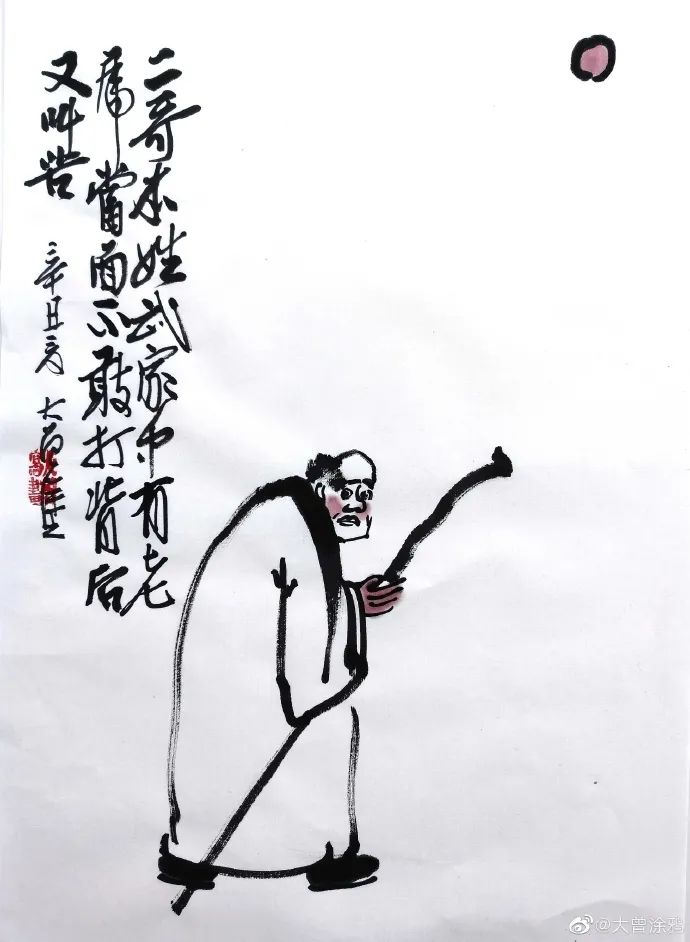 二哥本姓武家中有老
虎當面不敢打背后
又叫苦
辛丑 大曾
@大曾涂鸦